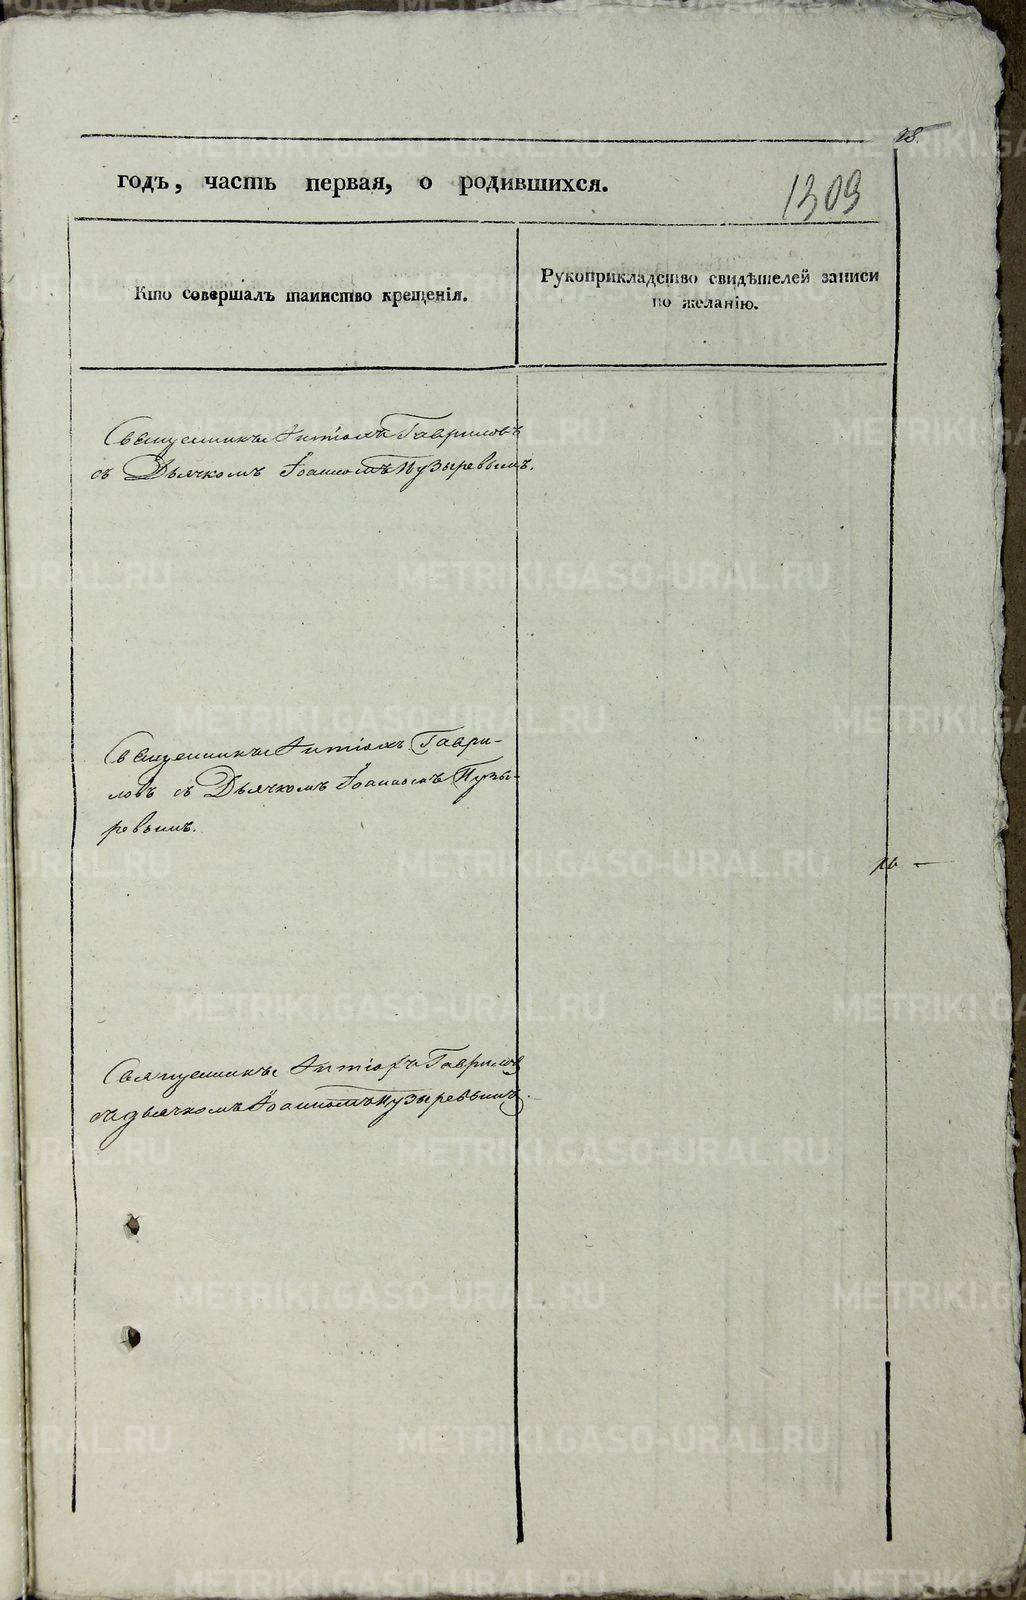 28.
годъ, часть первая, о родившихся.
1309
Кто совершалъ таинство крещенія.
Рукоприкладство свидѣтелей записи
по желанію.
Священникъ Антіохъ Гавриловъ
съ Дьячкомъ Іоанномъ Пузыревымъ.
Священникъ Антіохъ Гаври-
ловъ съ Дьячкомъ Іоанномъ Пузы-
ревымъ.
Священникъ Антіохъ Гавриловъ
съ дьячкомъ Іоанномъ Пузыревымъ.
METRIKI.GASO-URAL.RU